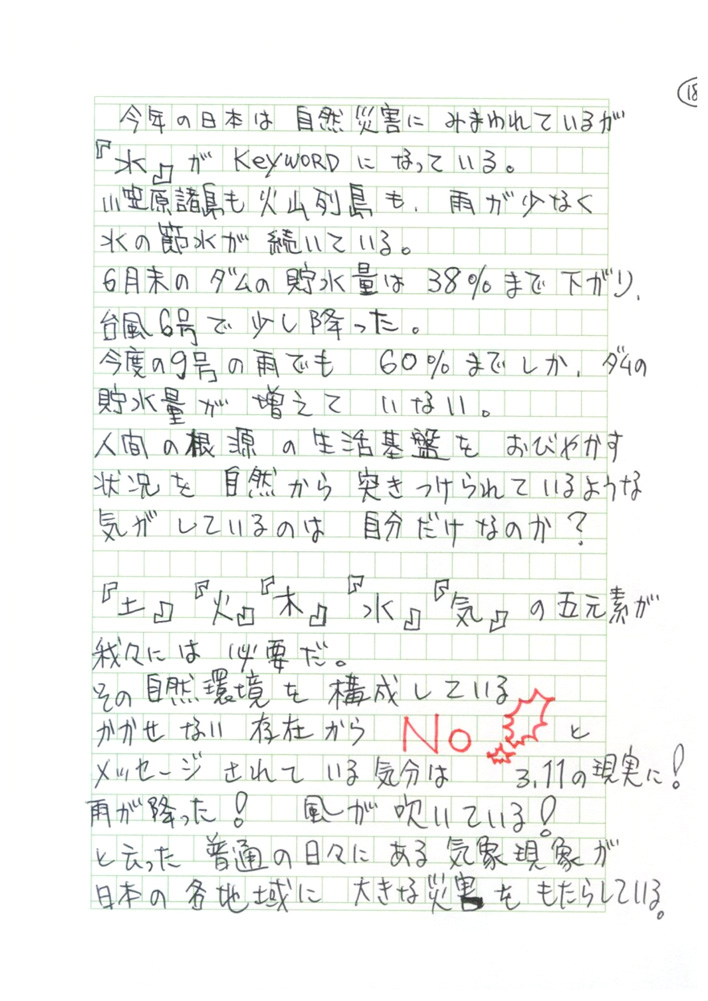 18
今年の日本は 自然災害に みまわれているが
『水』が KeyWORDに なっている。
小笠原諸島も 火山列島も、雨が少なく
水の節水が 続いている。
6月末の ダムの貯水量は 38%まで 下がり、
台風6号で 少し降った。
今度の9号の雨でも 60%までしか、ダムの
貯水量が 増えて いない。
人間の根源の生活基盤を おびやかす
状況を 自然から 突きつけられているような
気がしているのは 自分だけなのか?
『土』『火』『木』『水』『気』の五元素が
我々には 必要だ。
その自然環境を 構成している
かかせない 存在から No と
メッセージされている気分は 3.11の現実に!
雨が降った! 風が吹いている!
と云った 普通の日々にある気象現象が
日本の各地域に 大きな災害を もたらしている。